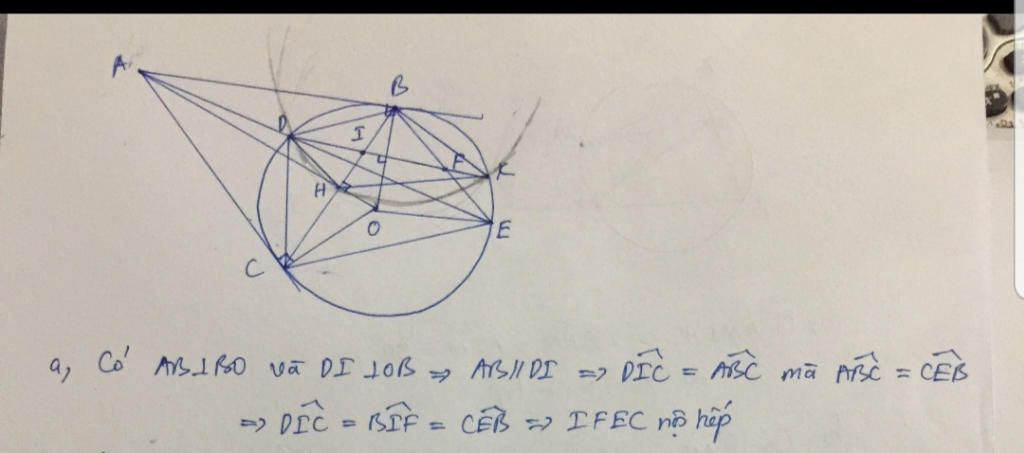 A
B
D
I
F
K
H
O
E
C
a, Có AB⊥BO và DI⊥OB => AB//DI => \widehat{DIC} = \widehat{ABC} mà \widehat{ABC} = \widehat{CEB}
=> \widehat{DIC} = \widehat{BIF} = \widehat{CEB} => IFEC nội tiếp